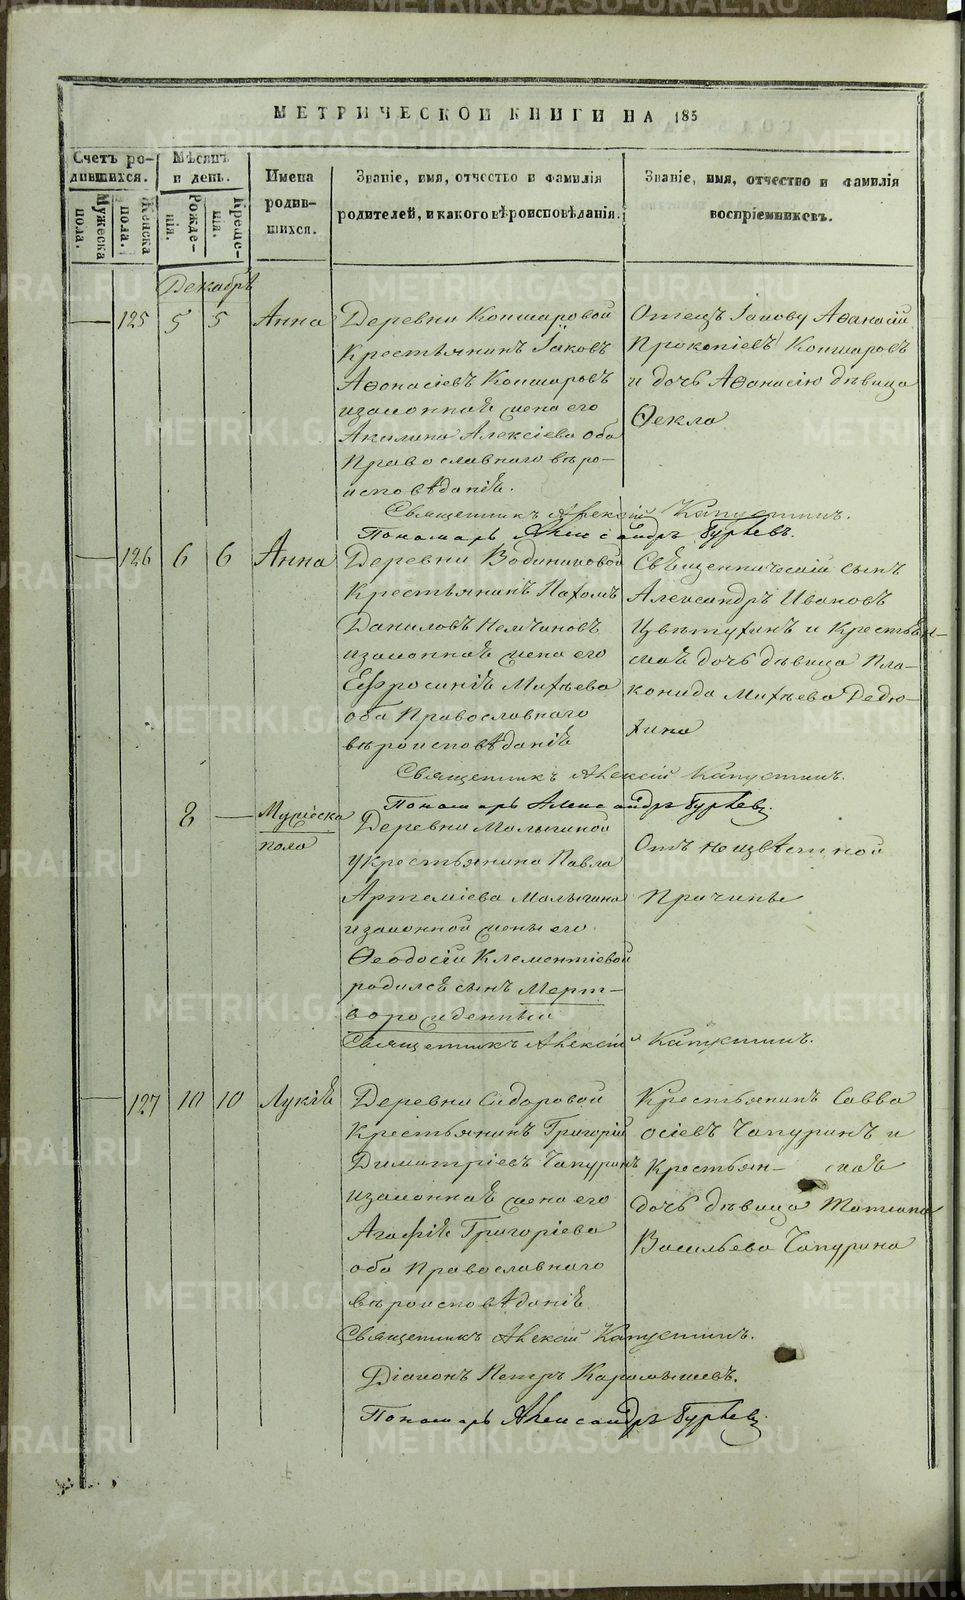 МЕТРИЧЕСКОЙ КНИГИ НА 185
Счетъ ро-
дившихся.
Мужеска
пола.
Женска
пола.
Мѣсяцъ
и день.
Рожде-
нія.
Креще-
нія.
Имена
родив-
шихся.
Званіе, имя, отчество и фамилія
родителей, и какого вѣроисповѣданія.
Званіе, имя, отчество и фамилія
воспріемниковъ.
Декабрь
125 5 5 Анна
Деревни Копшаровой
Крестьянинъ Іаковъ
Аѳонасіевъ Копшаровъ
и законная жена его
Акилина Алексіева оба
Православнаго вѣро-
исповѣданія.
Отецъ Іакову Аѳанасій
Прокопіевъ Копшаровъ
и дочь Аѳанасію дѣвица
Ѳекла
Священникъ Алексій Капустинъ.
Пономарь Александръ Гурьевъ.
126 6 6 Анна
Деревни Водиниковой
Крестьянинъ Пахомъ
Даниловъ Немчиновъ
и законная жена его
Ефросинія Михѣева
оба Православнаго
вѣроисповѣданія
Священническій сынъ
Александръ Ивановъ
Цвѣтухинъ и Крестьян-
ская дочь дѣвица Пла-
конида Михѣева Дедю-
хина
Священникъ Алексій Капустинъ.
Пономарь Александръ Гурьевъ.
8 — Мужеска
пола
Деревни Малыгиной
у Крестьянина Павла
Артеміева Малыгина
и законной жены его
Ѳеодосіи Клементіевой
родился сынъ Мерт-
ворожденный
Отъ неизвѣстной
Причины
Священникъ Алексій Капустинъ.
127 10 10 Лукія
Деревни Сидоровой
Крестьянинъ Григорій
Димитріевъ Чапуринъ
и законная жена его
Агафія Григоріева
оба Православнаго
вѣроисповѣданія
Крестьянинъ Савва
осіевъ Чапуринъ и
Крестьян- ская
дочь дѣвица Татіана
Васильева Чапурина
Священникъ Алексій Капустинъ.
Діаконъ Петръ Карамышевъ.
Пономарь Александръ Гурьевъ.
METRIKI.GASO-URAL.RU